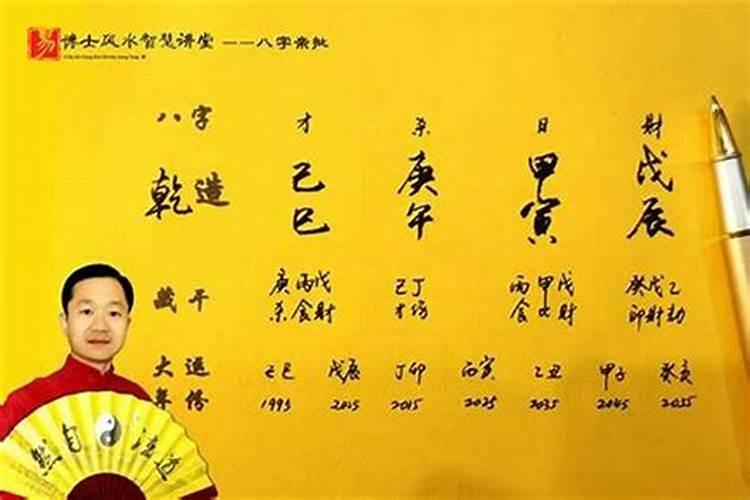 易 博士风水智慧讲堂 ——八字亲批
八字 才 杀 日 财
乾造 己 庚 甲 戊
巳 午 寅 辰
藏干 庚丙戊 己丁 丙甲戊 癸戊乙
杀食财 才伤 食比财 印财劫
大运 己巳 戊辰 丁卯 丙寅 乙丑 甲子 癸亥
年份 1995 2005 2015 2025 2035 2045 2055
然自法道